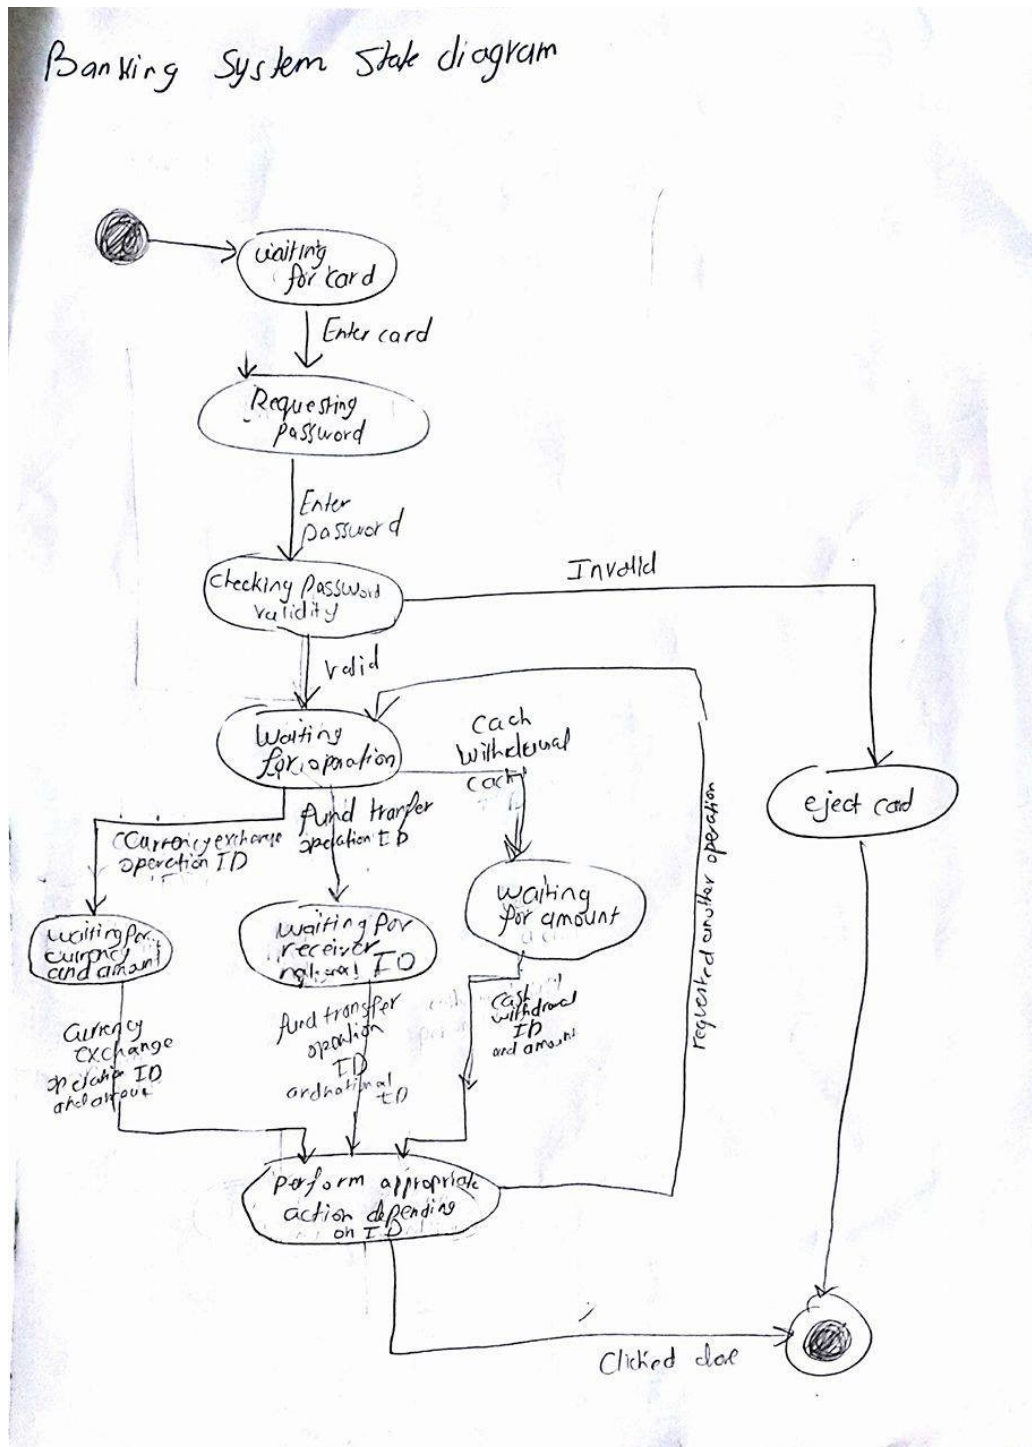 Banking System State diagram
waiting
for card
Enter card
Requesting
password
Enter
password
checking password
validity
Invalid
valid
Waiting
for operation
cach
withdrawal
cach
eject card
fund tranfer
operation ID
Currency exchange
operation ID
requested another operation
waiting
for amount
waiting for
currency
and amount
waiting for
receiver
national ID
Currency
exchange
operation ID
and amout
fund transfer
operation
ID
and national
ID
cash
withdrawal
ID
and amount
perform appropriate
action depending
on ID
Clicked